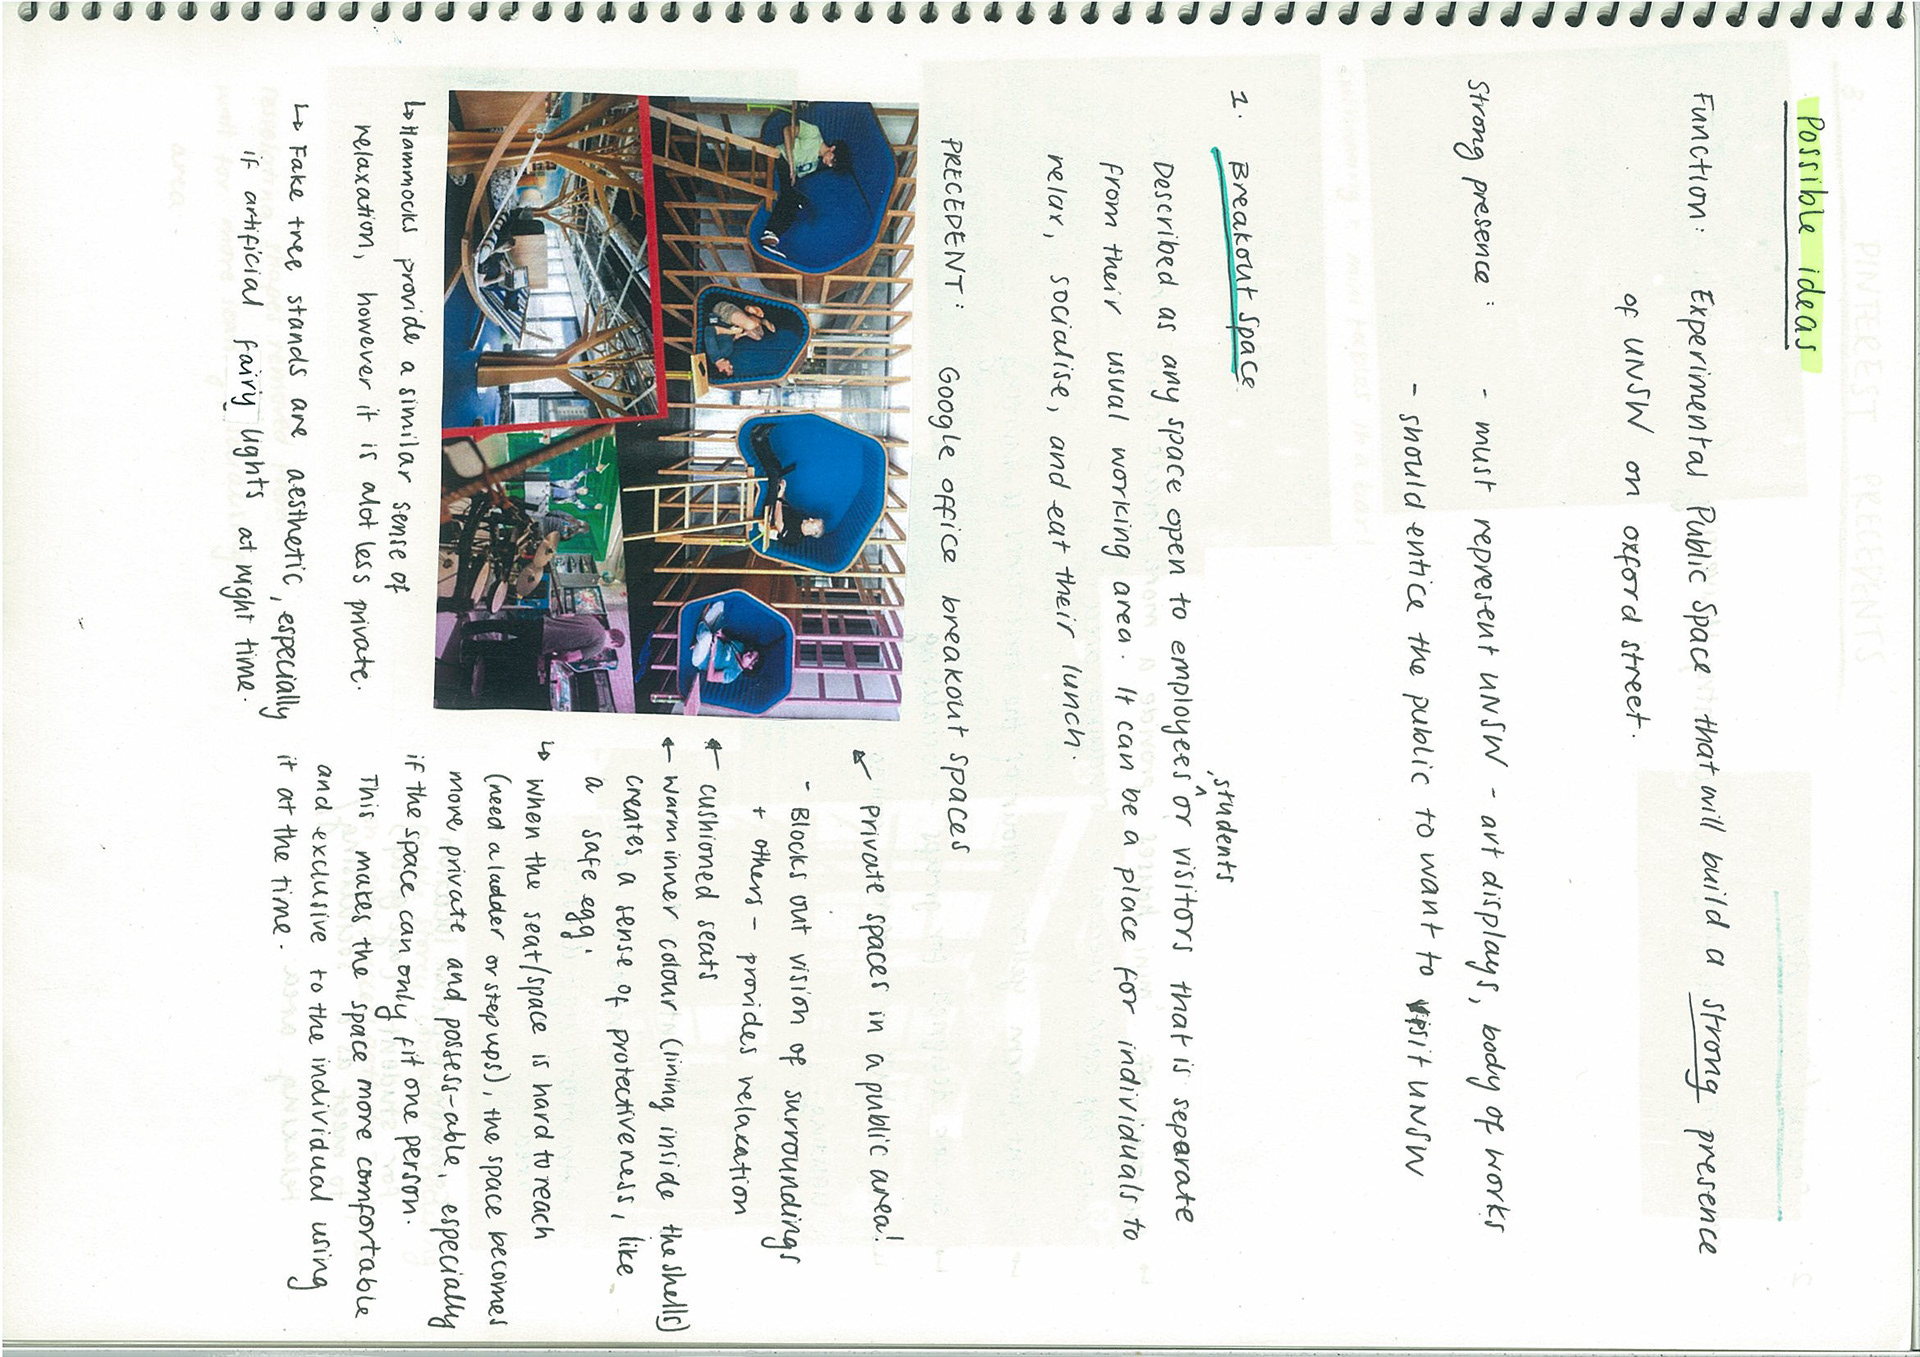 Possible ideas
Function: Experimental Public Space that will build a strong presence
of UNSW on oxford street.
Strong presence: - must represent UNSW - art displays, body of works
- should entice the public to want to visit UNSW
1. Breakout Space
, students
Described as any space open to employees ^ or visitors that is separate
from their usual working area. It can be a place for individuals to
relax, socialise, and eat their lunch.
PRECEDENT: Google office breakout spaces
← Private spaces in a public area!
- Blocks out vision of surroundings
+ others - provides relaxation
← cushioned seats
← warm inner colour (lining inside the shells)
creates a sense of protectiveness, like
a 'safe egg'
↳ when the seat/space is hard to reach
(need a ladder or step ups), the space becomes
more private and possess-able, especially
if the space can only fit one person.
This makes the space more comfortable
and exclusive to the individual using
it at the time.
↳ Hammocks provide a similar sense of
relaxation, however it is alot less private.
↳ Fake tree stands are aesthetic, especially
if artificial fairy lights at night time.